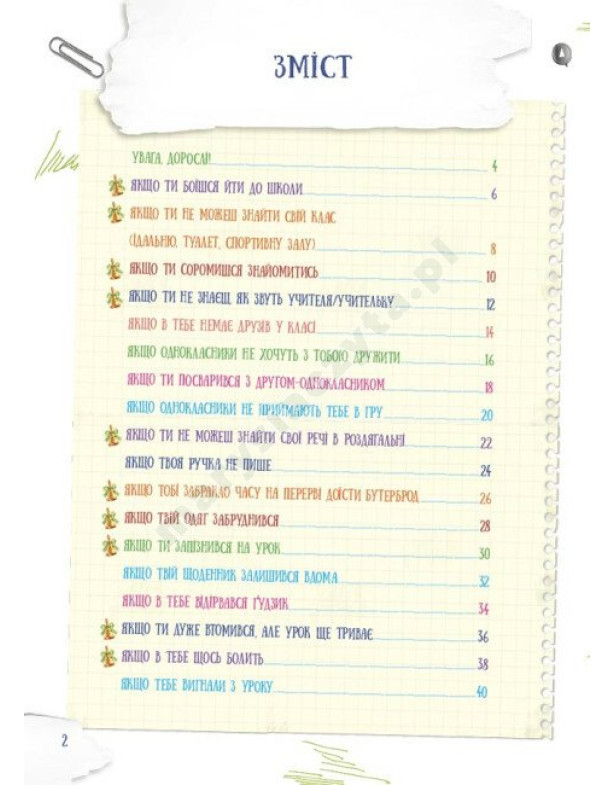 ЗМІСТ
УВАГА, ДОРОСЛІ! 4
ЯКЩО ТИ БОЇШСЯ ЙТИ ДО ШКОЛИ 6
ЯКЩО ТИ НЕ МОЖЕШ ЗНАЙТИ СВІЙ КЛАС
(ЇДАЛЬНЮ, ТУАЛЕТ, СПОРТИВНУ ЗАЛУ) 8
ЯКЩО ТИ СОРОМИШСЯ ЗНАЙОМИТИСЬ 10
ЯКЩО ТИ НЕ ЗНАЄШ, ЯК ЗВУТЬ УЧИТЕЛЯ/УЧИТЕЛЬКУ 12
ЯКЩО В ТЕБЕ НЕМАЄ ДРУЗІВ У КЛАСІ 14
ЯКЩО ОДНОКЛАСНИКИ НЕ ХОЧУТЬ З ТОБОЮ ДРУЖИТИ 16
ЯКЩО ТИ ПОСВАРИВСЯ З ДРУГОМ-ОДНОКЛАСНИКОМ 18
ЯКЩО ОДНОКЛАСНИКИ НЕ ПРИЙМАЮТЬ ТЕБЕ В ГРУ 20
ЯКЩО ТИ НЕ МОЖЕШ ЗНАЙТИ СВОЇ РЕЧІ В РОЗДЯГАЛЬНІ 22
ЯКЩО ТВОЯ РУЧКА НЕ ПИШЕ 24
ЯКЩО ТОБІ ЗАБРАКЛО ЧАСУ НА ПЕРЕРВІ ДОЇСТИ БУТЕРБРОД 26
ЯКЩО ТВІЙ ОДЯГ ЗАБРУДНИВСЯ 28
ЯКЩО ТИ ЗАПІЗНИВСЯ НА УРОК 30
ЯКЩО ТВІЙ ЩОДЕННИК ЗАЛИШИВСЯ ВДОМА 32
ЯКЩО В ТЕБЕ ВІДІРВАВСЯ ҐУДЗИК 34
ЯКЩО ТИ ДУЖЕ ВТОМИВСЯ, АЛЕ УРОК ЩЕ ТРИВАЄ 36
ЯКЩО В ТЕБЕ ЩОСЬ БОЛИТЬ 38
ЯКЩО ТЕБЕ ВИГНАЛИ З УРОКУ 40
2